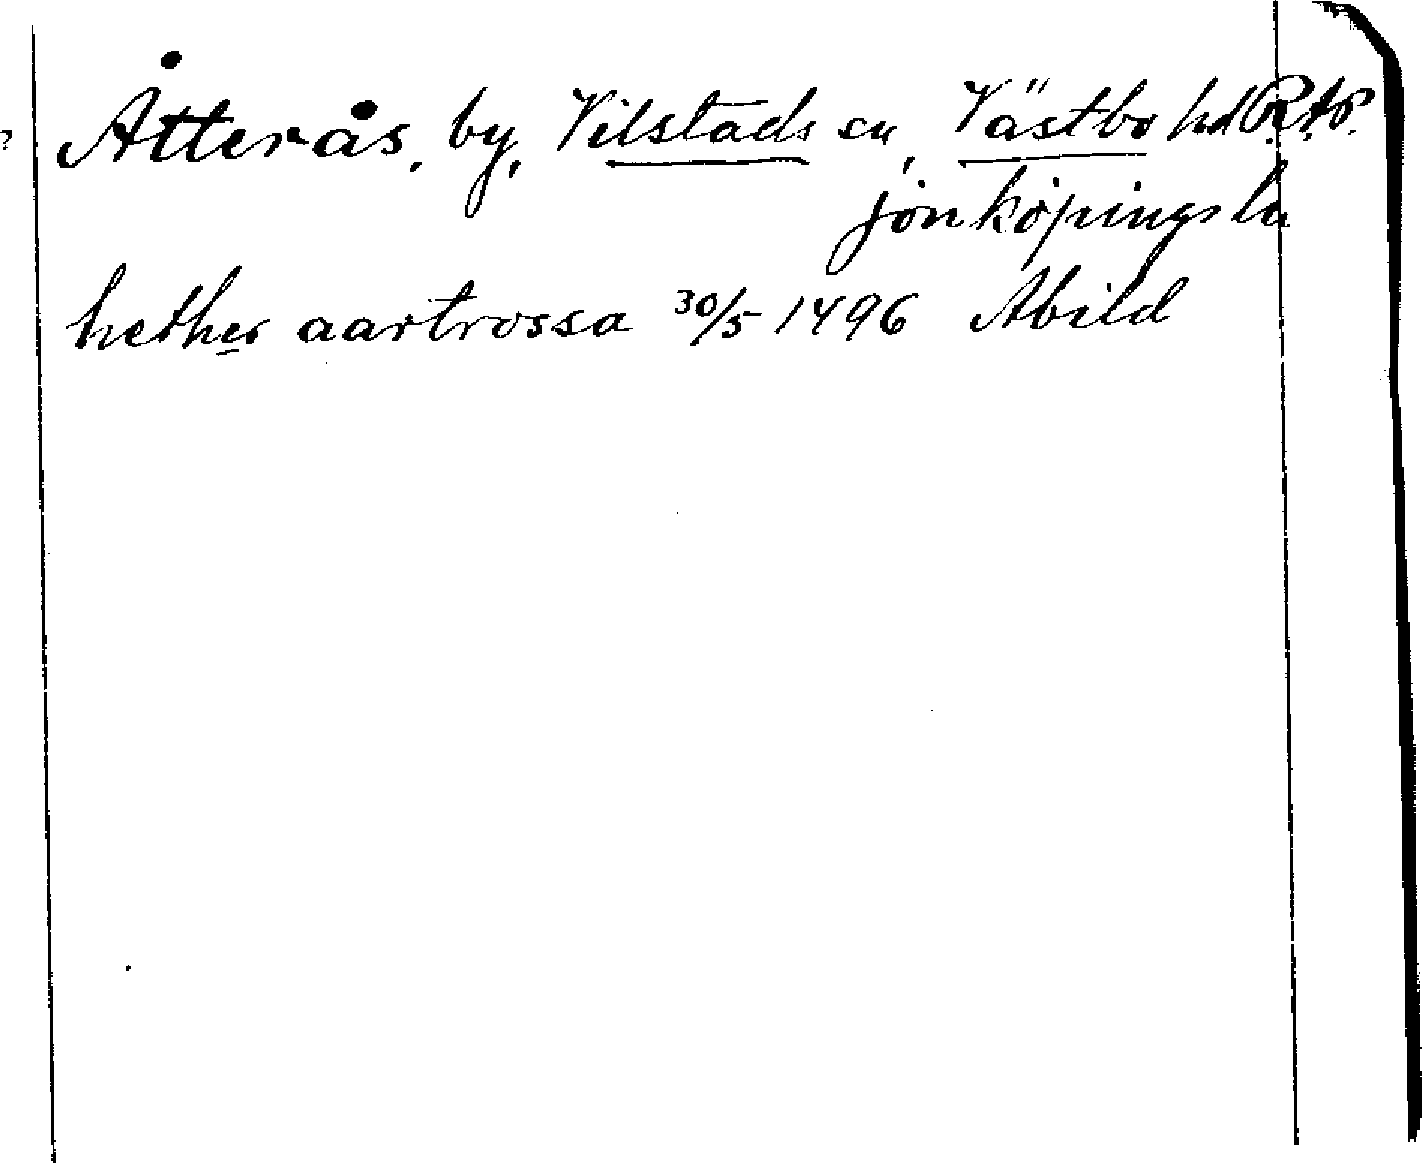 Åtterås, by, Vilstads sn, Västbo hd R.A.P.
Jönköpings ln
hether aartrossa 30/5 1496 Abild